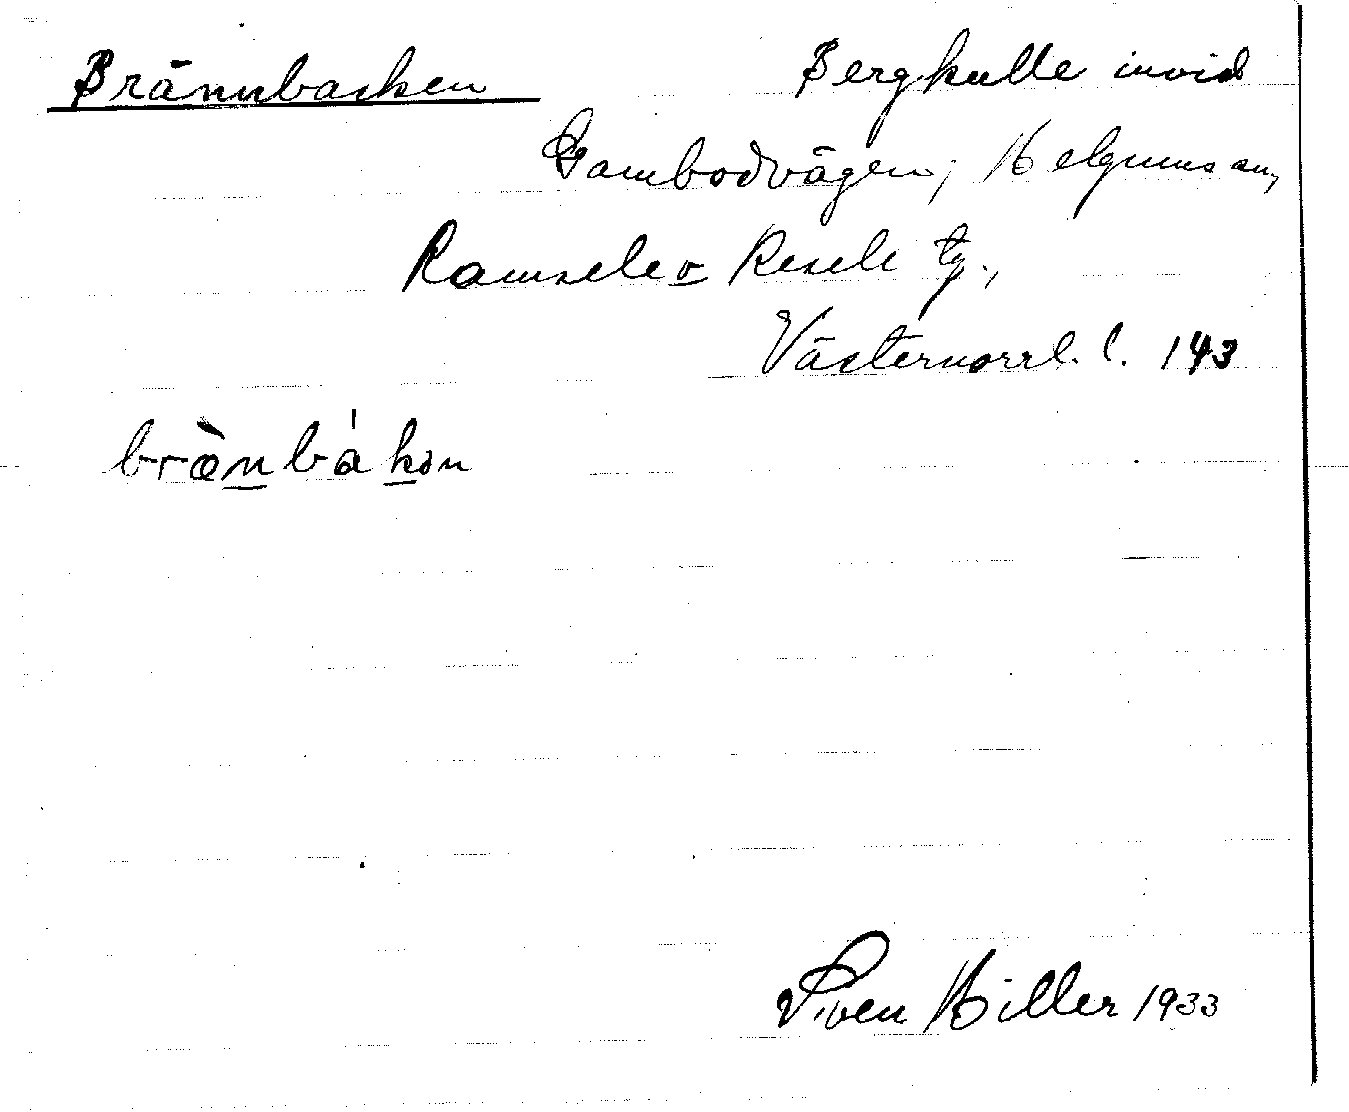 Brännbacken Bergkulle invid
Gambodvägen, Helgums sn,
Ramsele o Resele tg.,
Västernorrl. l. 143
bræ̀nbákən
Sven Hiller 1933